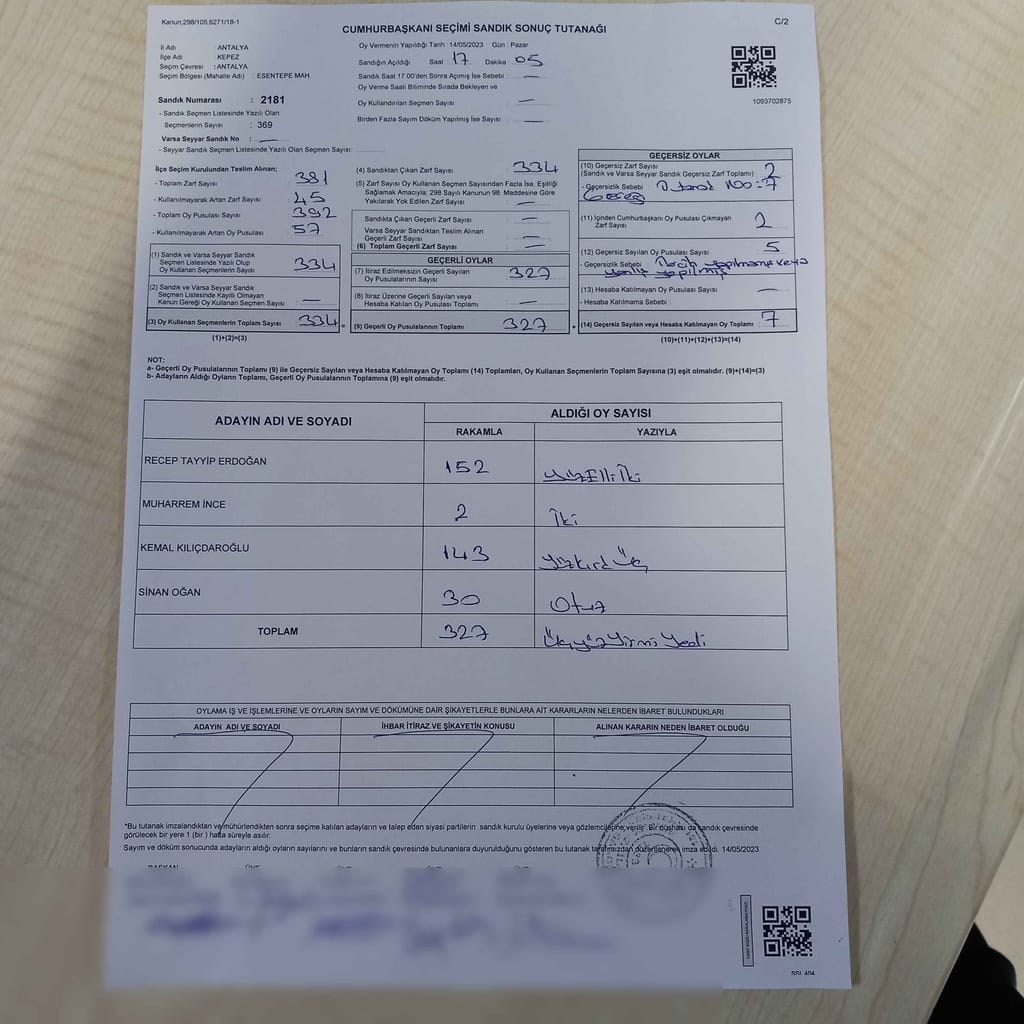 Kanun;298/105;6271/18-1
C/2
CUMHURBAŞKANI SEÇİMİ SANDIK SONUÇ TUTANAĞI
İl Adı : ANTALYA
İlçe Adı : KEPEZ
Seçim Çevresi : ANTALYA
Seçim Bölgesi (Mahalle Adı) : ESENTEPE MAH.
Sandık Numarası : 2181
- Sandık Seçmen Listesinde Yazılı Olan
Seçmenlerin Sayısı : 369
Varsa Seyyar Sandık No : —
- Seyyar Sandık Seçmen Listesinde Yazılı Olan Seçmen Sayısı:
Oy Vermenin Yapıldığı Tarih :14/05/2023 Gün : Pazar
Sandığın Açıldığı Saat 17 Dakika 05
Sandık Saat 17:00'den Sonra Açılmış İse Sebebi : —
Oy Verme Saati Bitiminde Sırada Bekleyen ve
Oy Kullandırılan Seçmen Sayısı : —
Birden Fazla Sayım Döküm Yapılmış İse Sayısı : —
1093702875
İlçe Seçim Kurulundan Teslim Alınan;
- Toplam Zarf Sayısı : 381
- Kullanılmayarak Artan Zarf Sayısı : 45
- Toplam Oy Pusulası Sayısı : 392
- Kullanılmayarak Artan Oy Pusulası : 57
(1) Sandık ve Varsa Seyyar Sandık
Seçmen Listesinde Yazılı Olup
Oy Kullanan Seçmenlerin Sayısı : 334
(2) Sandık ve Varsa Seyyar Sandık
Seçmen Listesinde Kayıtlı Olmayan
Kanun Gereği Oy Kullanan Seçmen Sayısı : —
(3) Oy Kullanan Seçmenlerin Toplam Sayısı : 334 =
(1)+(2)=(3)
(4) Sandıktan Çıkan Zarf Sayısı : 334
(5) Zarf Sayısı Oy Kullanan Seçmen Sayısından Fazla İse, Eşitliği
Sağlamak Amacıyla, 298 Sayılı Kanunun 98. Maddesine Göre
Yakılarak Yok Edilen Zarf Sayısı : —
Sandıkta Çıkan Geçerli Zarf Sayısı : —
Varsa Seyyar Sandıktan Teslim Alınan
Geçerli Zarf Sayısı : —
(6) Toplam Geçerli Zarf Sayısı : —
GEÇERLİ OYLAR
(7) İtiraz Edilmeksizin Geçerli Sayılan
Oy Pusulalarının Sayısı : 327
(8) İtiraz Üzerine Geçerli Sayılan veya
Hesaba Katılan Oy Pusulası Toplamı : —
(9) Geçerli Oy Pusulalarının Toplamı : 327 +
GEÇERSİZ OYLAR
(10) Geçersiz Zarf Sayısı
(Sandık ve Varsa Seyyar Sandık Geçersiz Zarf Toplamı) : 2
- Geçersizlik Sebebi :
(11) İçinden Cumhurbaşkanı Oy Pusulası Çıkmayan
Zarf Sayısı : 2
(12) Geçersiz Sayılan Oy Pusulası Sayısı : 5
- Geçersizlik Sebebi : Tercih yapılmamış veya
yanlış yapılmış
(13) Hesaba Katılmayan Oy Pusulası Sayısı : —
- Hesaba Katılmama Sebebi :
(14) Geçersiz Sayılan veya Hesaba Katılmayan Oy Toplamı : 7
(10)+(11)+(12)+(13)=(14)
NOT:
a- Geçerli Oy Pusulalarının Toplamı (9) ile Geçersiz Sayılan veya Hesaba Katılmayan Oy Toplamı (14) Toplamları, Oy Kullanan Seçmenlerin Toplam Sayısına (3) eşit olmalıdır. (9)+(14)=(3)
b- Adayların Aldığı Oyların Toplamı, Geçerli Oy Pusulalarının Toplamına (9) eşit olmalıdır.
ADAYIN ADI VE SOYADI
ALDIĞI OY SAYISI
RAKAMLA YAZIYLA
RECEP TAYYİP ERDOĞAN 152 YüzElli İki
MUHARREM İNCE 2 İki
KEMAL KILIÇDAROĞLU 143 Yüzkırk Üç
SİNAN OĞAN 30 Otuz
TOPLAM 327 Üçyüz Yirmi Yedi
OYLAMA İŞ VE İŞLEMLERİNE VE OYLARIN SAYIM VE DÖKÜMÜNE DAİR ŞİKAYETLERLE BUNLARA AİT KARARLARIN NELERDEN İBARET BULUNDUKLARI
ADAYIN ADI VE SOYADI İHBAR İTİRAZ VE ŞİKAYETİN KONUSU ALINAN KARARIN NEDEN İBARET OLDUĞU
*Bu tutanak imzalandıktan ve mühürlendikten sonra seçime katılan adayların ve talep eden siyasi partilerin sandık kurulu üyelerine veya gözlemcilerine verilir. Bir nüshası da sandık çevresinde
görülecek bir yere 1 (bir ) hafta süreyle asılır.
Sayım ve döküm sonucunda adayların aldığı oyların sayılarını ve bunların sandık çevresinde bulunanlara duyurulduğunu gösteren bu tutanak tarafımızdan düzenlenerek imza edildi. 14/05/2023